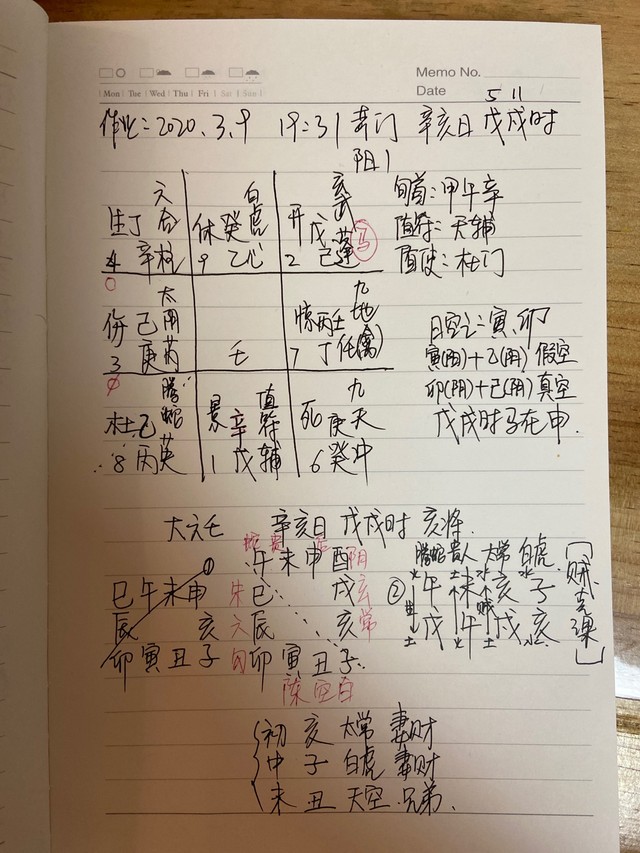 Memo No.
Mon Tue Wed Thu Fri Sat Sun
Date
5 11
作业:2020.3.9 19:31 辛亥日 戊戌时
阳1
生丁 六合
4 辛柱
休癸 白虎
9 乙心
开戊 玄武
2 己蓬
马
旬首:甲午辛
值符:天辅
值使:杜门
伤己 太阴
3 庚芮
壬
惊丙壬 九地
7 丁任(禽)
日空亡:寅、卯
寅(阳)+乙(阴) 假空
卯(阴)+己(阴) 真空
戊戌时马在申.
杜乙 腾蛇
8 丙英
景辛 值符
1 戊辅
死庚 九天
6 癸冲
大六壬 辛亥日 戊戌时 亥将.
①
巳午未申
辰 亥
卯寅丑子
午未申酉 阴
朱 巳 戌 玄
六 辰 亥 常
勾 卯寅丑子
空白
② 腾蛇 贵人 太常 白虎
午 未 亥 子
戌 午 戌 亥
土 火 土 水
[贼克课]
初 亥 太常 妻财
中 子 白虎 妻财
末 丑 天空 兄弟.